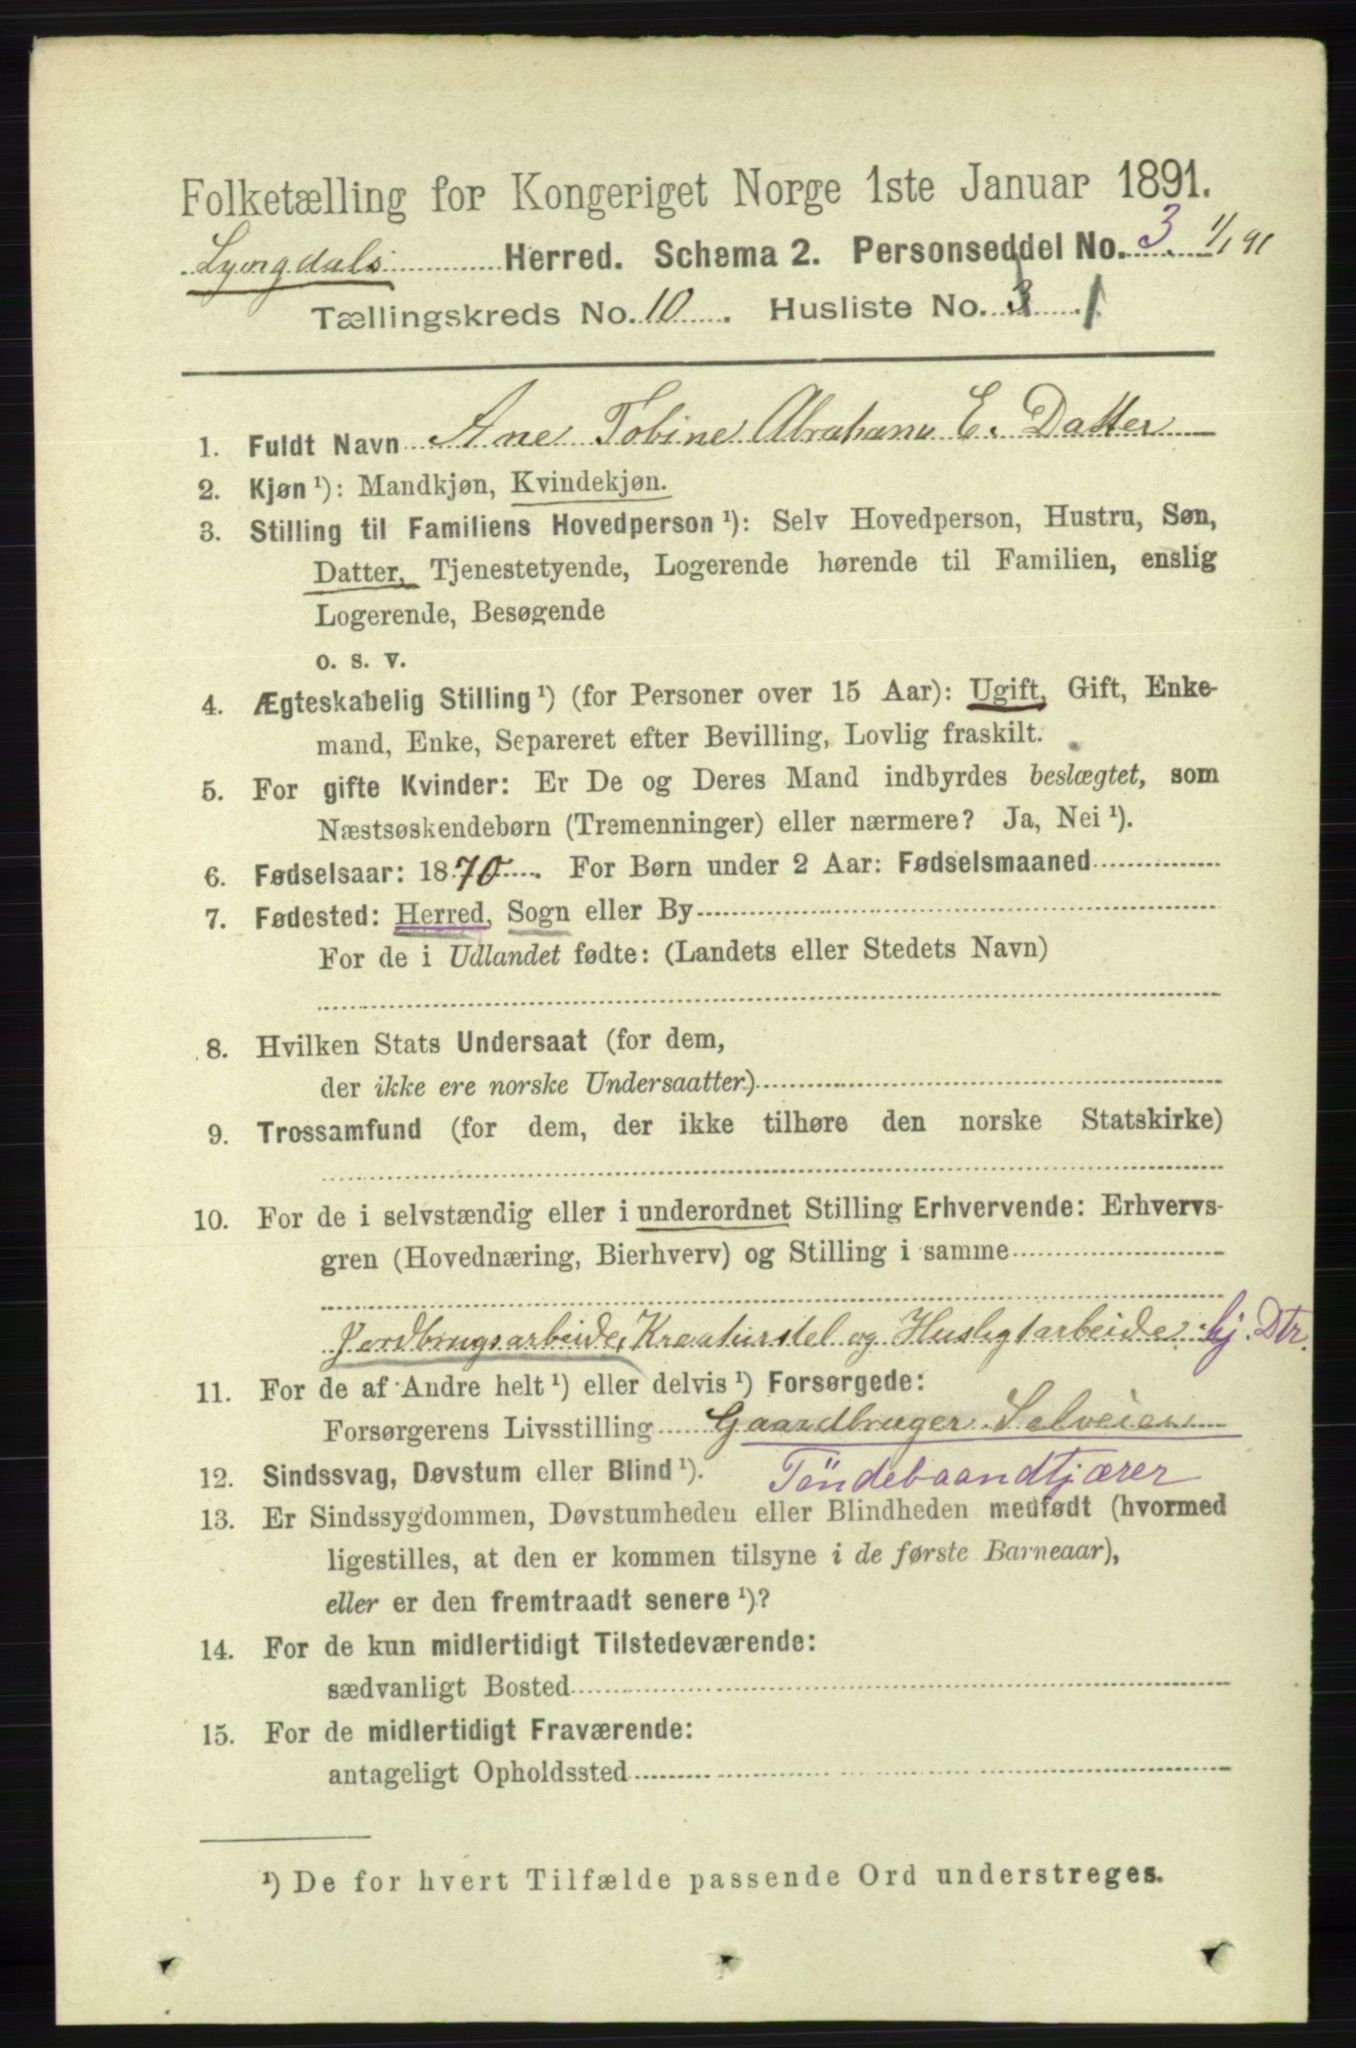 Folketælling for Kongeriget Norge 1ste Januar 1891.
Lyngdals Herred. Schema 2. Personseddel No. 3. 1/1 91
Tællingskreds No. 10. Husliste No. 3 1
1. Fuldt Navn Ane Tobine Abrahams E. Datter
2. Kjøn¹): Mandkjøn, Kvindekjøn.
3. Stilling til Familiens Hovedperson¹): Selv Hovedperson, Hustru, Søn,
Datter, Tjenestetyende, Logerende hørende til Familien, enslig
Logerende, Besøgende
o. s. v.
4. Ægteskabelig Stilling¹) (for Personer over 15 Aar): Ugift, Gift, Enke-
mand, Enke, Separeret efter Bevilling, Lovlig fraskilt.
5. For gifte Kvinder: Er De og Deres Mand indbyrdes beslægtet, som
Næstsøskendebørn (Tremenninger) eller nærmere? Ja, Nei¹).
6. Fødselsaar: 1870. For Børn under 2 Aar: Fødselsmaaned
7. Fødested: Herred, Sogn eller By
For de i Udlandet fødte: (Landets eller Stedets Navn)
8. Hvilken Stats Undersaat (for dem,
der ikke ere norske Undersaatter)
9. Trossamfund (for dem, der ikke tilhøre den norske Statskirke)
10. For de i selvstændig eller i underordnet Stilling Erhvervende: Erhvervs-
gren (Hovednæring, Bierhverv) og Stilling i samme
Jordbrugsarbeide, Kreaturstel og Husligtarbeide hj. Dtr.
11. For de af Andre helt¹) eller delvis¹) Forsørgede:
Forsørgerens Livsstilling Gaardbruger Selveier
12. Sindssvag, Døvstum eller Blind¹). Töndebaandtjærer
13. Er Sindssygdommen, Døvstumheden eller Blindheden medfødt (hvormed
ligestilles, at den er kommen tilsyne i de første Barneaar),
eller er den fremtraadt senere¹)?
14. For de kun midlertidigt Tilstedeværende:
sædvanligt Bosted
15. For de midlertidigt Fraværende:
antageligt Opholdssted
¹) De for hvert Tilfælde passende Ord understreges.